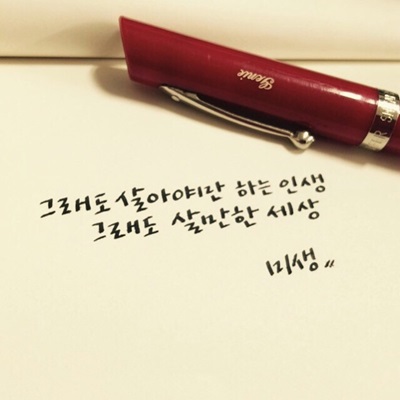 Genie
그래도 살아야만 하는 인생
그래도 살만한 세상
미생〃